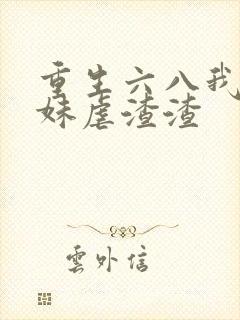 重生六八我
妹虐渣渣
雲外信